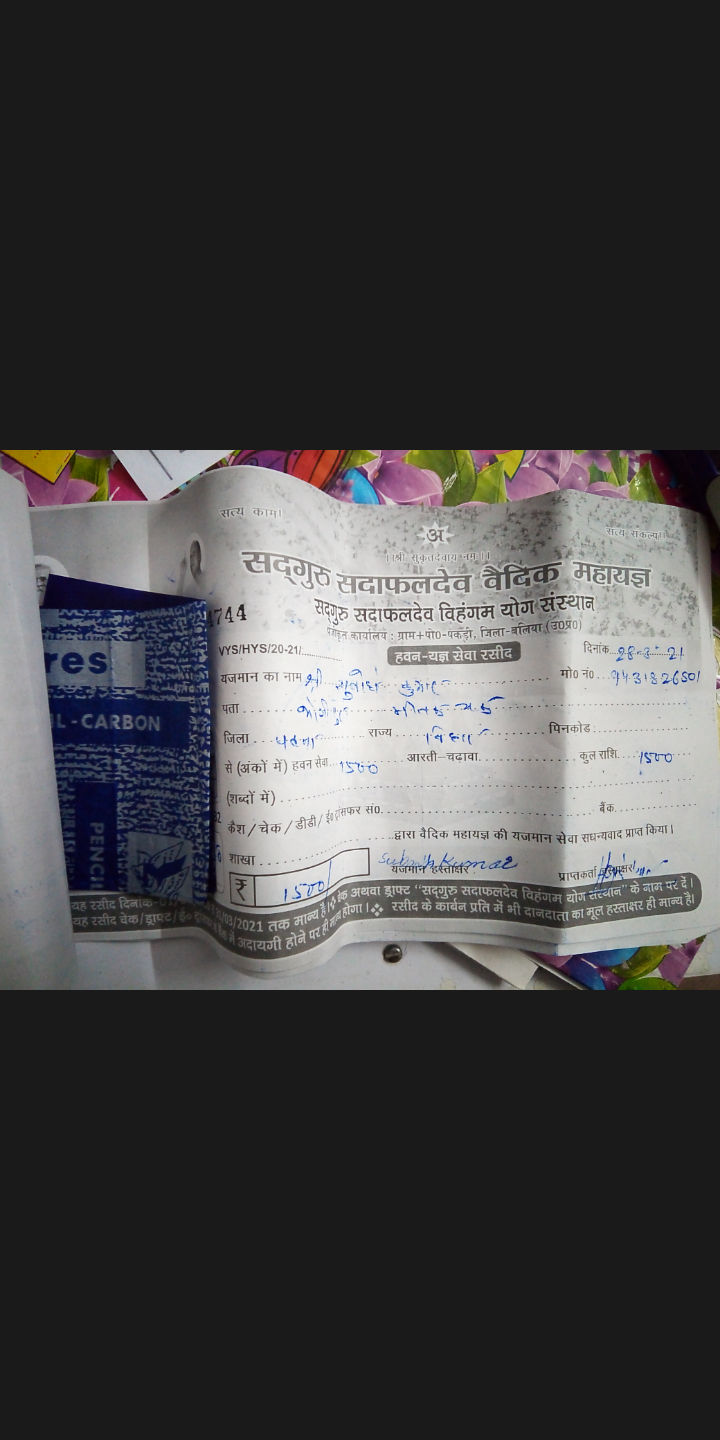 सत्य काम।
सत्य संकल्प।।
अ
।।श्री सुकृतदेवाय नमः।।
सद्गुरु सदाफलदेव वैदिक महायज्ञ
सद्गुरु सदाफलदेव विहंगम योग संस्थान
कार्यालय : ग्राम+पो०-पकड़ी, जिला-बलिया (उ०प्र०)
744
VYS/HYS/20-21/
हवन-यज्ञ सेवा रसीद
दिनांक 28-3-21
यजमान का नाम श्री सुबोध कुमार
मो० नं०
पता
जिला पटना राज्य बिहार पिनकोड
से (अंकों में) हवन सेवा 1500 आरती-चढ़ावा कुल राशि 1500
(शब्दों में)
कैश/चेक/डीडी/ई० ट्रांसफर सं० बैंक
द्वारा वैदिक महायज्ञ की यजमान सेवा सधन्यवाद प्राप्त किया।
शाखा
Kumar
यजमान हस्ताक्षर
प्राप्तकर्ता हस्ताक्षर
₹ 1500/
यह रसीद दिनांक 03/2021 तक मान्य है। चेक अथवा ड्राफ्ट "सद्गुरु सदाफलदेव विहंगम योग संस्थान" के नाम पर दें।
यह रसीद चेक/ड्राफ्ट/ई० में अदायगी होने पर ही मान्य होगा। रसीद के कार्बन प्रति में भी दानदाता का मूल हस्ताक्षर ही मान्य है।
res
L-CARBON
PENC